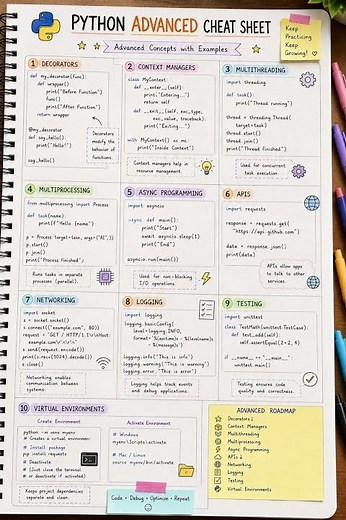 PYTHON ADVANCED CHEAT SHEET
Advanced Concepts with Examples
Keep
Practicing
Keep
Growing!
1 DECORATORS
def my_decorator(func):
def wrapper()
print("Before Function")
func()
print("After Function")
return wrapper
@my_decorator
def say_hello():
print("Hello!")
say_hello()
Decorators
modify the
behavior of
functions.
2 CONTEXT MANAGERS
class MyContext:
def __enter__(self):
print("Entering...")
return self
def __exit__(self, exc_type,
exc_value, traceback):
print("Exiting...")
with MyContext() as mc:
print("Inside Context")
Context managers help in
resource management.
3 MULTITHREADING
import threading
def task():
print("Thread running")
thread = threading.Thread(
target=task)
thread.start()
thread.join()
print("Thread finished")
Used for concurrent
task execution.
4 MULTIPROCESSING
from multiprocessing import Process
def task(name):
print(f"Hello {name}")
p.start()
p.join()
print("Process finished")
Runs tasks in separate
processes (parallel).
5 ASYNC PROGRAMMING
import asyncio
async def main():
print("Start")
await asyncio.sleep(1)
print("End")
asyncio.run(main())
Used for non-blocking
I/O operations.
6 APIS
import requests
response = requests.get(
"https://api.github.com")
data = response.json()
print(data)
APIs allow apps
to talk to other
services.
7 NETWORKING
import socket
s = socket.socket()
s.connect(("example.com", 80))
s.send(request.encode())
print(s.recv(1024).decode())
s.close()
Networking enables
communication between
systems.
8 LOGGING
import logging
logging.basicConfig(
level=logging.INFO,
logging.info("This is info")
logging.warning("This is warning")
logging.error("This is error")
Logging helps track events
and debug applications.
9 TESTING
import unittest
class TestMath(unittest.TestCase):
def test_add(self):
self.assertEqual(2+2, 4)
unittest.main()
Testing ensures code
quality and correctness.
10 VIRTUAL ENVIRONMENTS
Create Environment
python -m venv myenv
# Creates a virtual environment
# Install package
pip install requests
# Deactivate
Activate Environment
# Windows
myenv\Scripts\activate
# Mac / Linux
source myenv/bin/activate
Keeps project dependencies
separate and clean.
Code • Debug • Optimize • Repeat
ADVANCED ROADMAP
Decorators
Context Managers
Multithreading
Multiprocessing
Async Programming
APIs
Networking
Logging
Testing
Virtual Environments